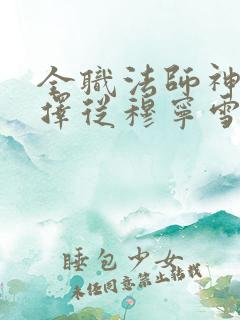 全職法師神
擇從穆寧雪
睡包少女
未任同意禁止转载